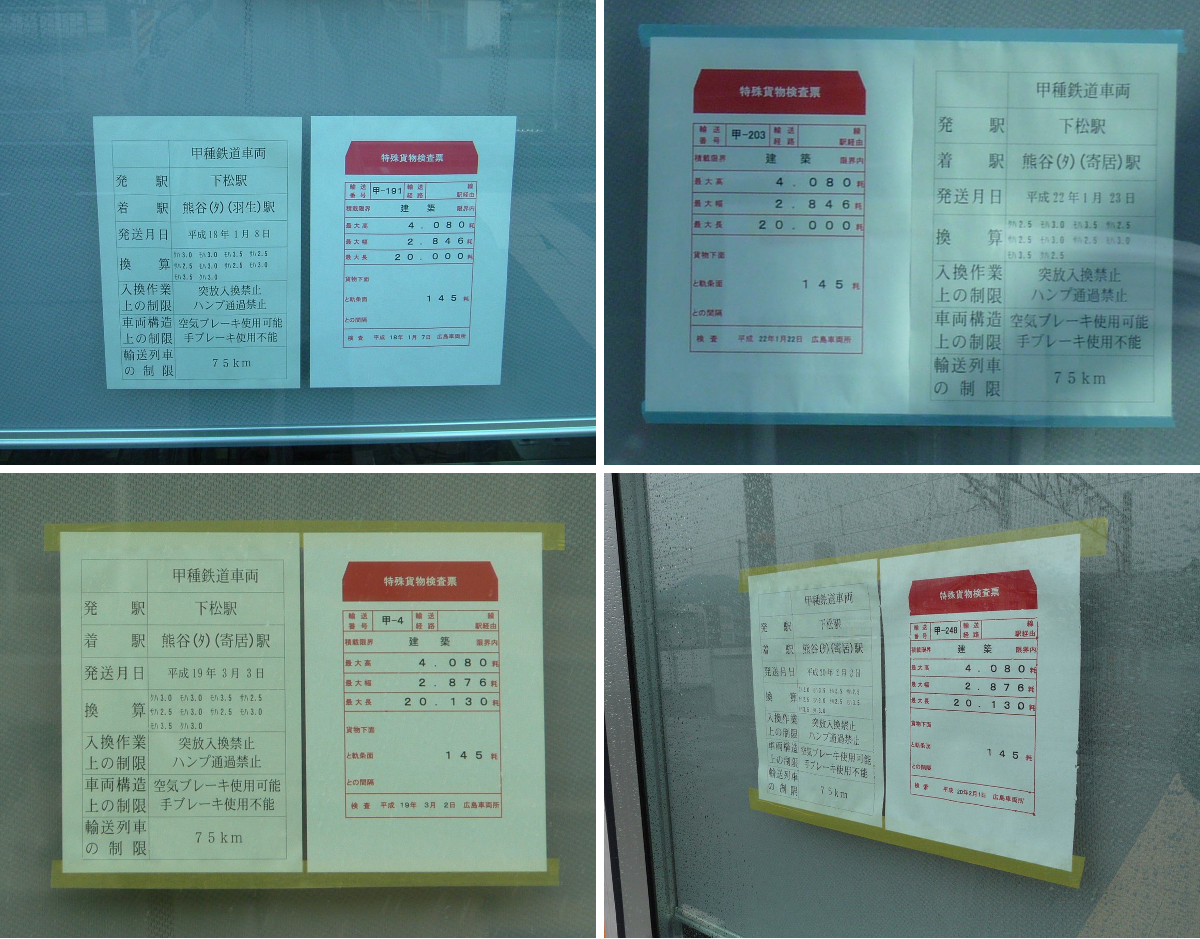 甲種鉄道車両
発駅 下松駅
着駅 熊谷(タ)(羽生)駅
発送月日 平成18年1月8日
換算 ｻﾊ3.0 ﾓﾊ3.0 ﾓﾊ3.5 ｻﾊ2.5
ｻﾊ2.5 ﾓﾊ3.0 ｻﾊ2.5 ﾓﾊ3.0
ﾓﾊ3.5 ｸﾊ3.0
入換作業 突放入換禁止
上の制限 ハンプ通過禁止
車両構造 空気ブレーキ使用可能
上の制限 手ブレーキ使用不能
輸送列車
の制限 75km
特殊貨物検査票
輸送番号 甲-191 輸送経路 線駅経由
積載限界 建築 限界内
最大高 4.080粍
最大幅 2.846粍
最大長 20.000粍
貨物下面
と軌条面 145粍
との間隔
検査 平成18年1月7日 広島車両所
特殊貨物検査票
輸送番号 甲-203 輸送経路 線駅経由
積載限界 建築 限界内
最大高 4.080粍
最大幅 2.846粍
最大長 20.000粍
貨物下面
と軌条面 145粍
との間隔
検査 平成22年1月22日 広島車両所
甲種鉄道車両
発駅 下松駅
着駅 熊谷(タ)(寄居)駅
発送月日 平成22年1月23日
換算
入換作業 突放入換禁止
上の制限 ハンプ通過禁止
車両構造 空気ブレーキ使用可能
上の制限 手ブレーキ使用不能
輸送列車
の制限 75km
甲種鉄道車両
発駅 下松駅
着駅 熊谷(タ)(寄居)駅
発送月日 平成19年3月3日
換算 ｸﾊ3.0 ﾓﾊ3.0 ﾓﾊ3.5 ｻﾊ2.5
ｻﾊ2.5 ﾓﾊ3.0 ｻﾊ2.5 ﾓﾊ3.0
ﾓﾊ3.5 ｸﾊ3.0
入換作業 突放入換禁止
上の制限 ハンプ通過禁止
車両構造 空気ブレーキ使用可能
上の制限 手ブレーキ使用不能
輸送列車
の制限 75km
特殊貨物検査票
輸送番号 甲-4 輸送経路 線駅経由
積載限界 建築 限界内
最大高 4.080粍
最大幅 2.876粍
最大長 20.130粍
貨物下面
と軌条面 145粍
との間隔
検査 平成19年3月2日 広島車両所
甲種鉄道車両
発駅 下松駅
着駅 熊谷(タ)(寄居)駅
発送月日 平成20年2月2日
換算
入換作業 突放入換禁止
上の制限 ハンプ通過禁止
車両構造 空気ブレーキ使用可能
上の制限 手ブレーキ使用不能
輸送列車
の制限 75km
特殊貨物検査票
輸送番号 甲-248 輸送経路 線駅経由
積載限界 建築 限界内
最大高 4.080粍
最大幅 2.876粍
最大長 20.130粍
貨物下面
と軌条面 145粍
との間隔
検査 平成20年2月1日 広島車両所